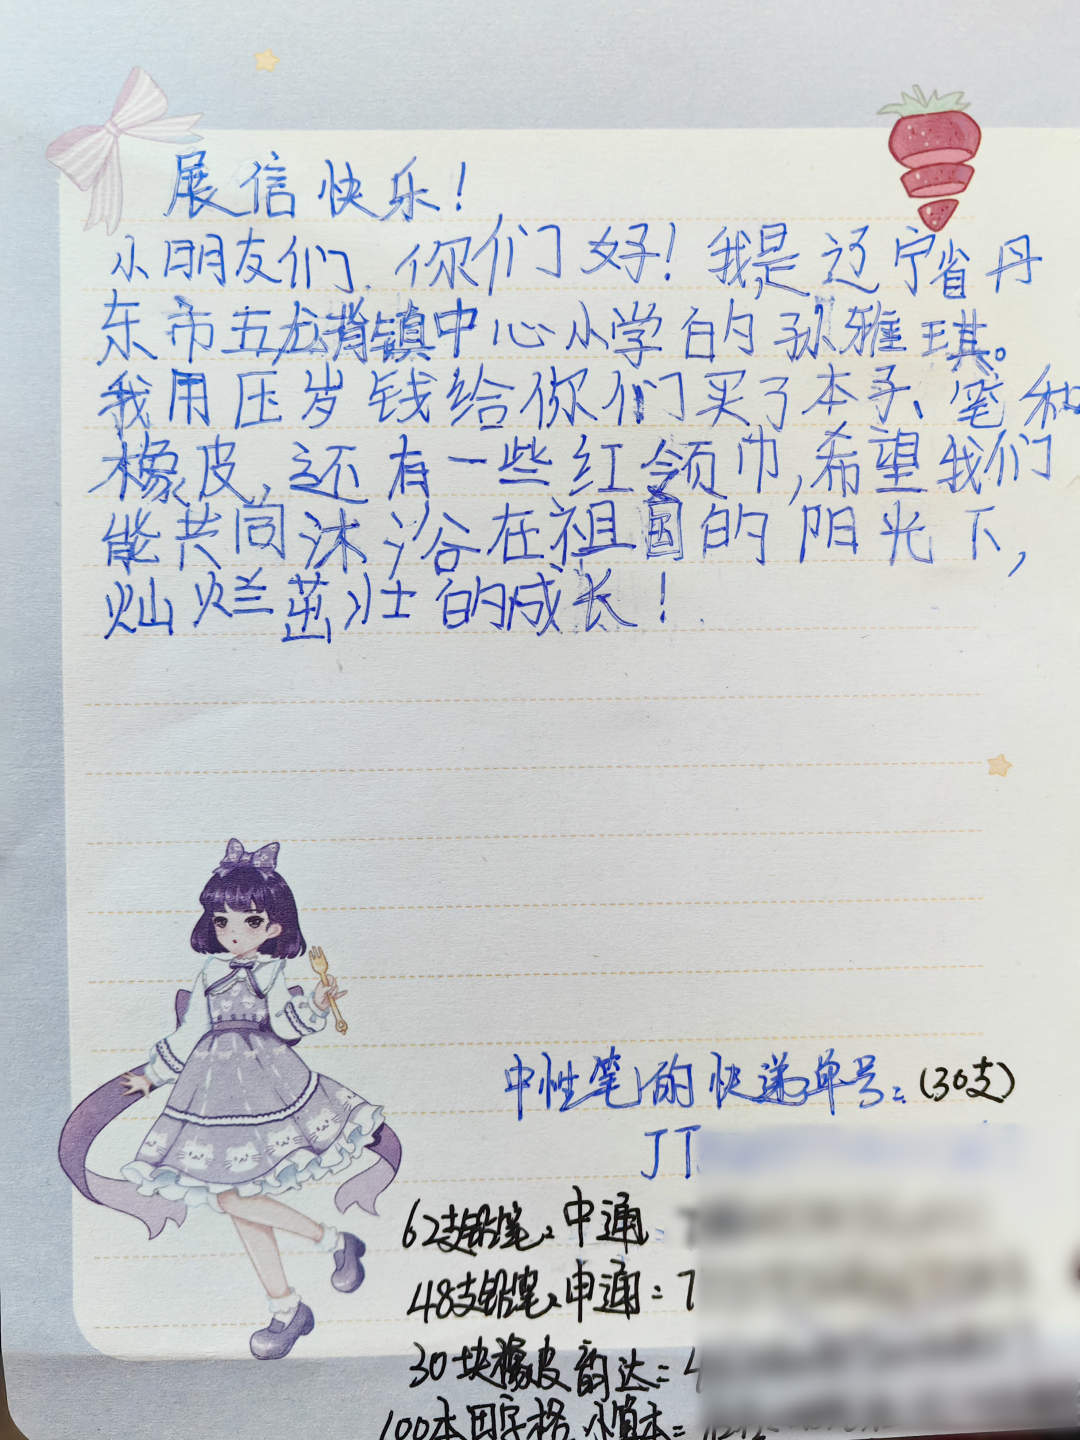 展信快乐!
小朋友们,你们好!我是辽宁省丹
东市五龙背镇中心小学的孙雅琪。
我用压岁钱给你们买了本子、笔和
橡皮,还有一些红领巾,希望我们
能共同沐浴在祖国的阳光下,
灿烂茁壮的成长!
中性笔的快递单号:(30支)
JT
62支铅笔:中通:7
48支铅笔:申通:7
30块橡皮韵达:4
100本田字格,小算本: